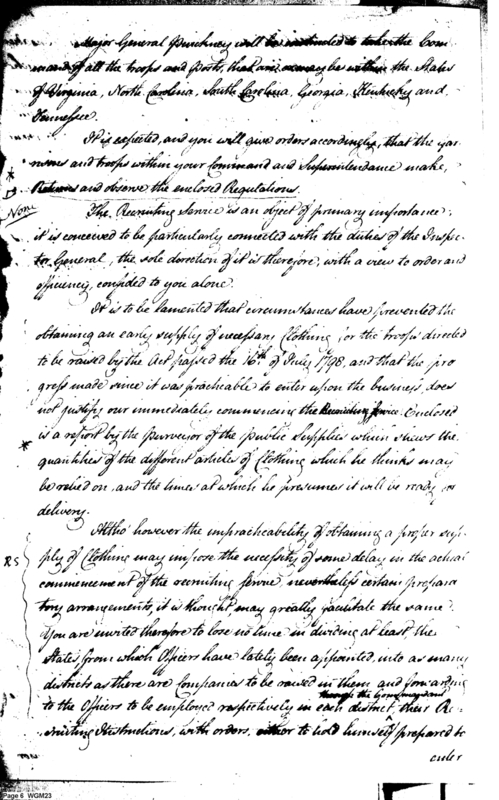 Major General Pinckney will be instructed to take the Com
mand of all the troops and Posts, that are or may be within the States
of Virginia, North Carolina, South Carolina, Georgia, Kentucky and
Tennessee.
It is expected, and you will give orders accordingly, that the gar
risons and troops within your Command and Superintendance make,
Returns and observe the enclosed Regulations.
None
The Recruiting Service is an object of primary importance;
it is conceived to be particularly connected with the duties of the Inspec
tor General, the sole direction of it is therefore, with a view to order and
efficiency, confided to you alone.
It is to be lamented that circumstances have prevented the
obtaining an early supply of necessary Clothing for the troops directed
to be raised by the Act passed the 16th of July 1798, and that the pro
gress made since it was practicable to enter upon the business, does
not justify our immediately commencing the Recruiting Service. Enclosed
is a report by the Purveyor of the Public Supplies which shows the
quantities of the different articles of Clothing which he thinks may
be relied on, and the times at which he presumes it will be ready for
delivery.
Altho' however the impracticability of obtaining a proper sup
RS
ply of Clothing may impose the necessity of some delay in the actual
commencement of the recruiting service, nevertheless certain prepara
tory arrangements, it is thought may greatly facilitate the same.
You are invited therefore to lose no time in dividing at least, the
States from which Officers have lately been appointed, into as many
districts as there are Companies to be raised in them and forwarding
through the
to the Officers to be employed respectively in each district, their Re
cruiting Instructions, with orders, either to hold himself prepared to
enter
Page 6 WGM23